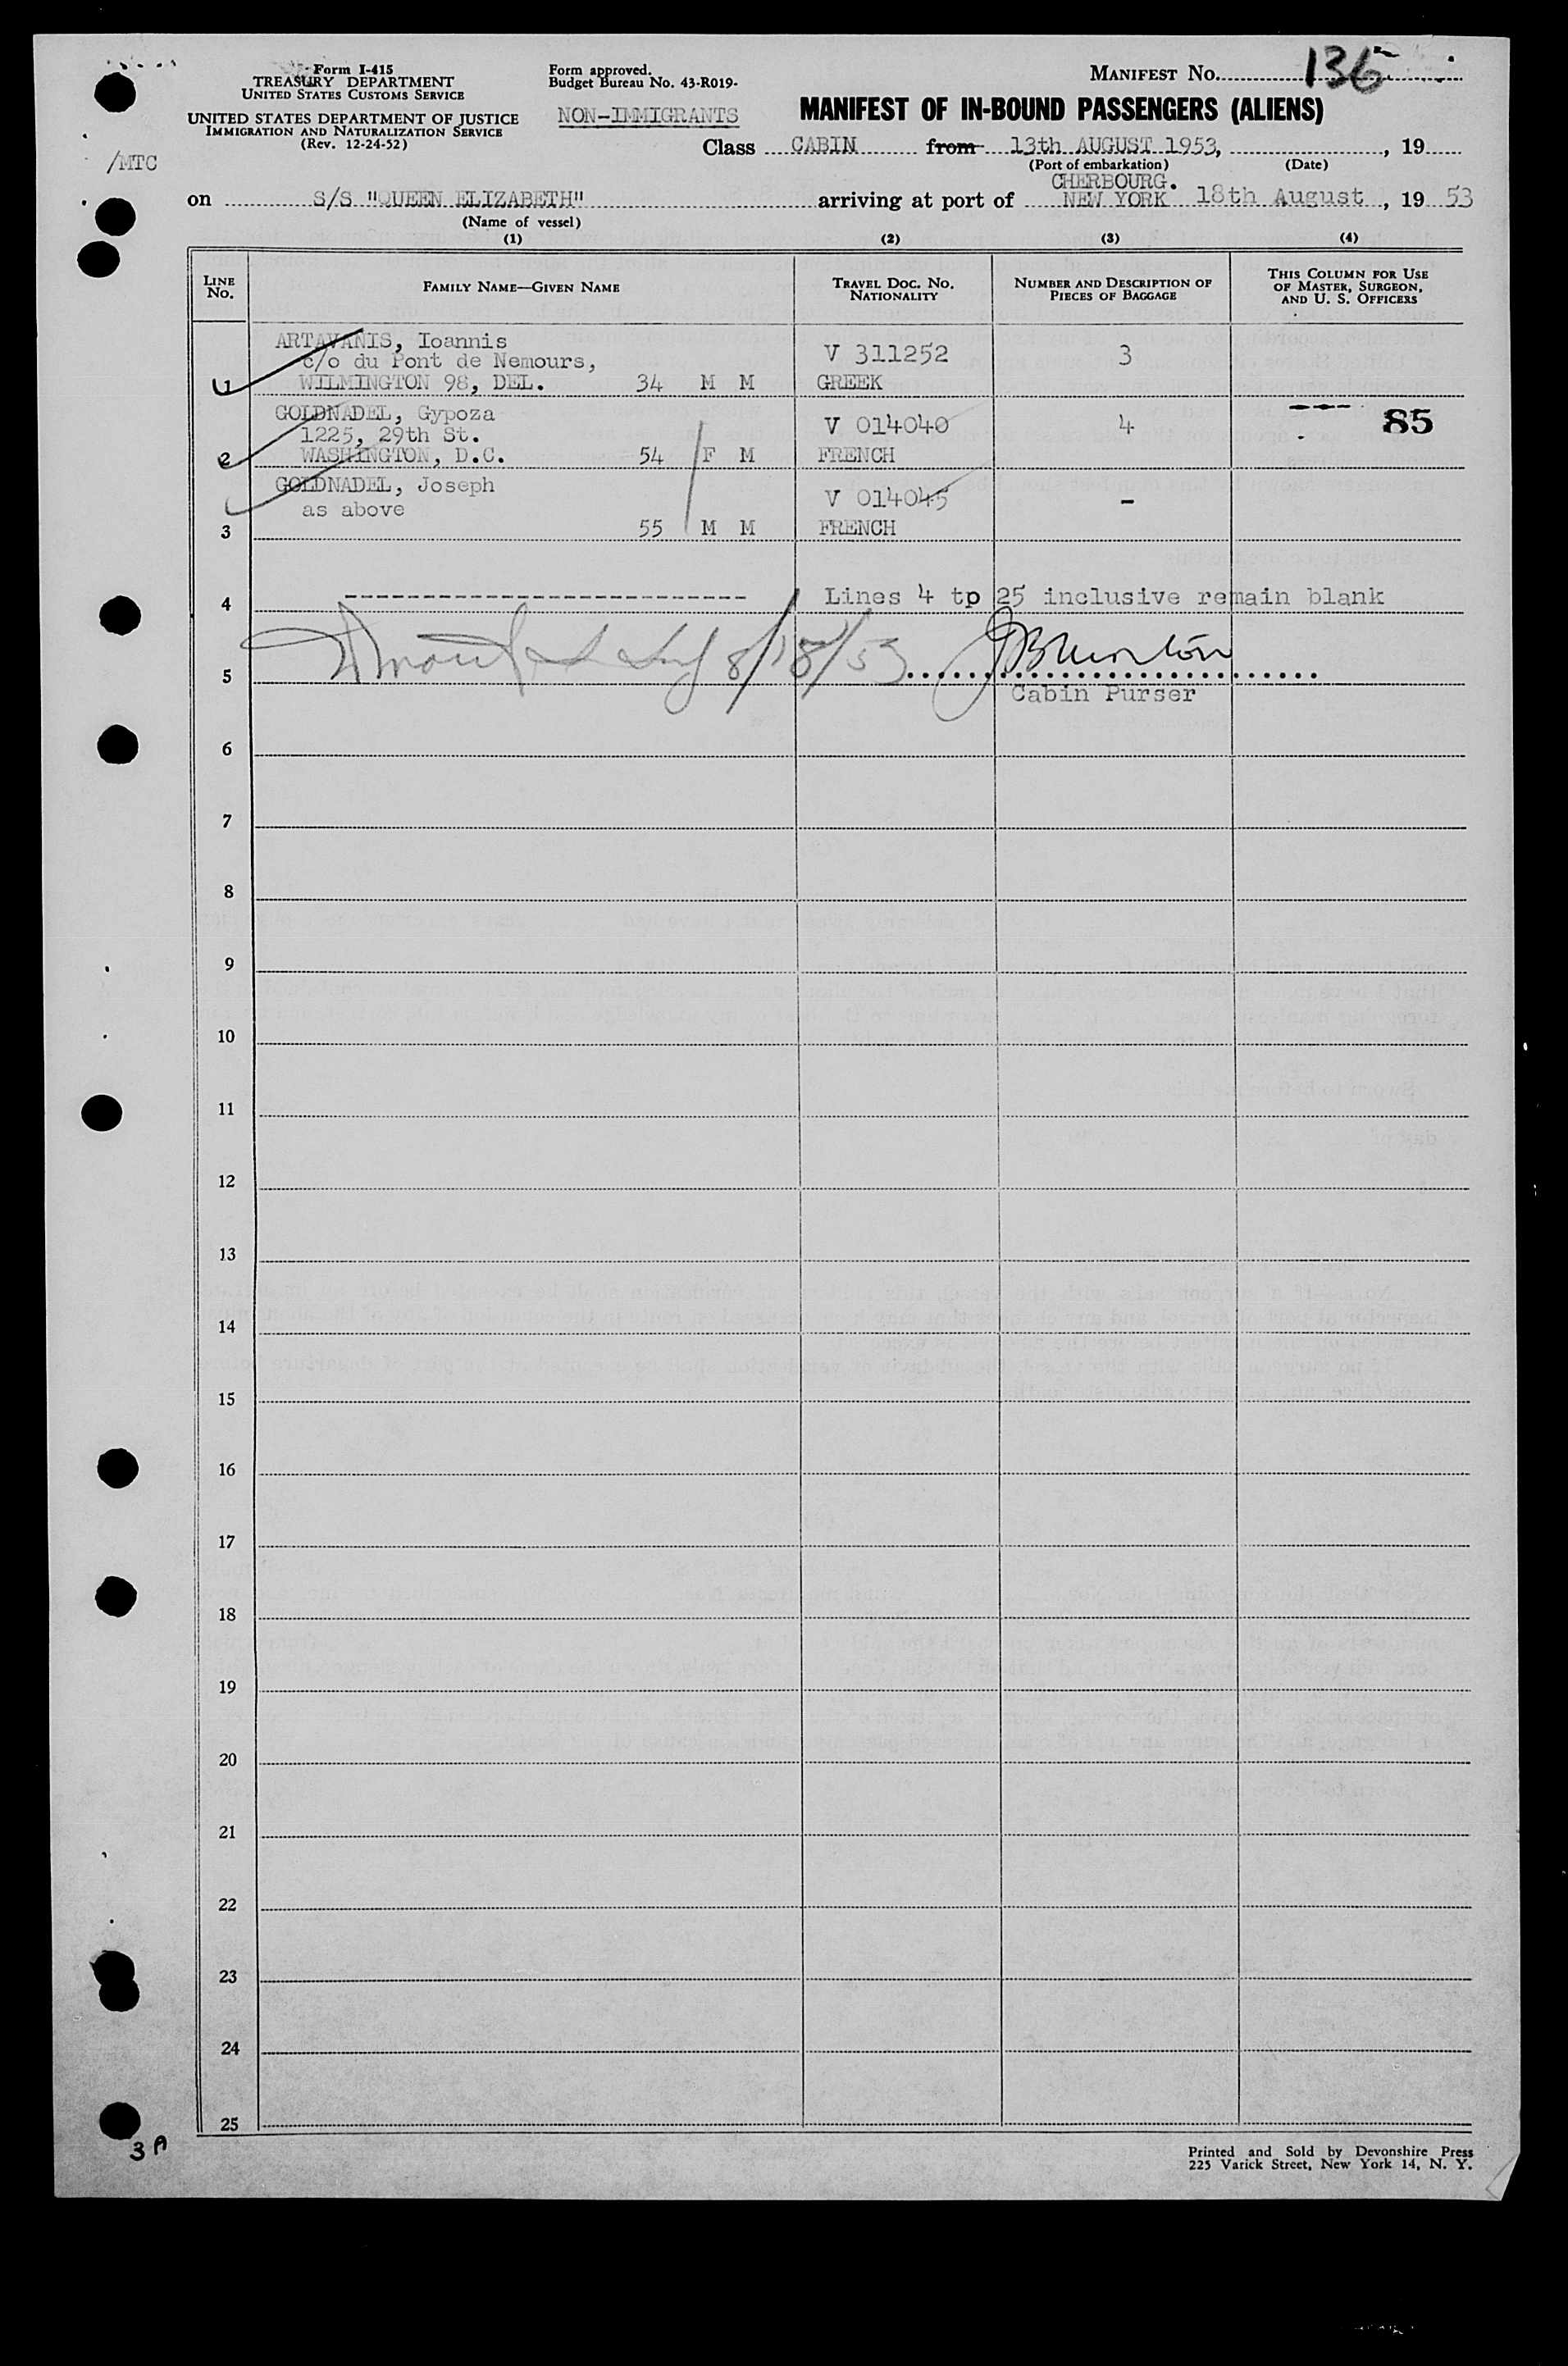 Form I-415
TREASURY DEPARTMENT
UNITED STATES CUSTOMS SERVICE
UNITED STATES DEPARTMENT OF JUSTICE
IMMIGRATION AND NATURALIZATION SERVICE
(Rev. 12-24-52)
/MTC
Form approved.
Budget Bureau No. 43-R019-
NON-IMMIGRANTS
MANIFEST No. 136
MANIFEST OF IN-BOUND PASSENGERS (ALIENS)
Class CABIN from 13th AUGUST 1953, , 19
(Port of embarkation) (Date)
CHERBOURG.
on S/S "QUEEN ELIZABETH" arriving at port of NEW YORK 18th August, 19 53
(Name of vessel)
(1) (2) (3) (4)
LINE No. FAMILY NAME—GIVEN NAME TRAVEL DOC. NO. NATIONALITY NUMBER AND DESCRIPTION OF PIECES OF BAGGAGE THIS COLUMN FOR USE OF MASTER, SURGEON, AND U. S. OFFICERS
ARTAVANIS, Ioannis
c/o du Pont de Nemours, V 311252 3
1 WILMINGTON 98, DEL. 34 M M GREEK
GOLDNADEL, Gypoza
1225, 29th St. V 014040 4 85
2 WASHINGTON, D.C. 54 F M FRENCH
GOLDNADEL, Joseph
as above V 014045 -
3 55 M M FRENCH
4 Lines 4 tp 25 inclusive remain blank
5 8/18/53
Cabin Purser
6
7
8
9
10
11
12
13
14
15
16
17
18
19
20
21
22
23
24
25
3 A
Printed and Sold by Devonshire Press
225 Varick Street, New York 14, N. Y.